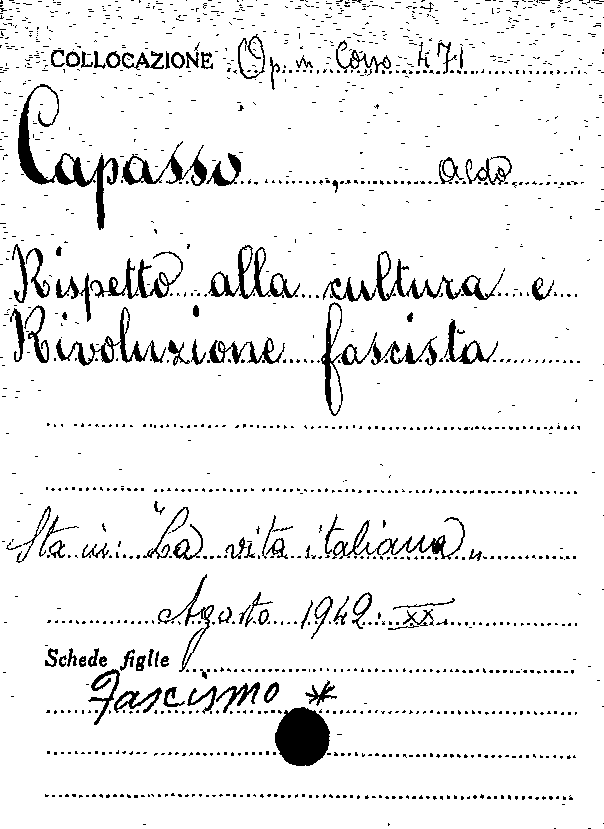 COLLOCAZIONE Op. in Corso 471
Capasso, Aldo
Rispetto alla cultura e
Rivoluzione fascista
Sta in: "La vita italiana"
Agosto 1942. XX.
Schede figlie
Fascismo *